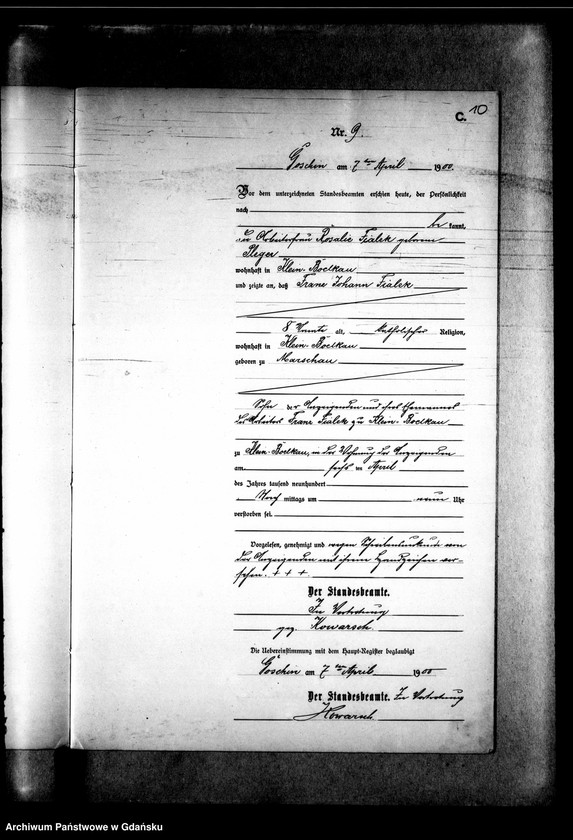 C. 10
Nr. 9.
Goschin am 7ten April 1900.
Vor dem unterzeichneten Standesbeamten erschien heute, der Persönlichkeit
nach
be kannt,
die Arbeiterfrau Rosalie Fialek geborene
Pleger
wohnhaft in Klein-Boelkau
und zeigte an, daß Franz Johann Fialek
8 Monate alt, katholischer Religion,
wohnhaft in Klein-Boelkau
geboren zu Marschau
Sohn der Anzeigenden und ihres Ehemannes
des Arbeiters Franz Fialek zu Klein-Boelkau
zu Klein-Boelkau, in der Wohnung der Anzeigenden
am sechs ten April
des Jahres tausend neunhundert
Nach mittags um neun Uhr
verstorben sei.
Vorgelesen, genehmigt und wegen Schreibensunkunde von
der Anzeigenden mit ihrem Handzeichen ver-
sehen. + + +
Der Standesbeamte.
In Vertretung
gez. Kowarsch.
Die Uebereinstimmung mit dem Haupt-Register beglaubigt
Goschin am 7ten April 1900
Der Standesbeamte. In Vertretung
Kowarsch.
Archiwum Państwowe w Gdańsku